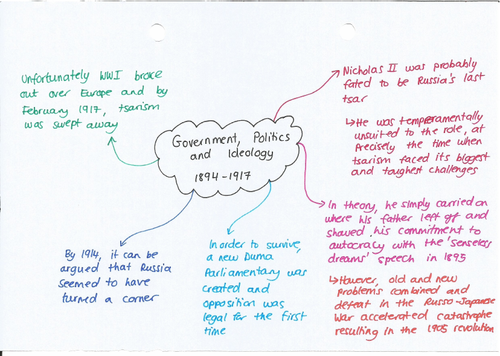 Unfortunately WWI broke
out over Europe and by
February 1917, tsarism
was swept away
Government, Politics
and Ideology
1894-1917
Nicholas II was probably
fated to be Russia's last
tsar
↳ He was temperamentally
unsuited to the role, at
precisely the time when
tsarism faced its biggest
and toughest challenges
In theory, he simply carried on
where his father left off and
showed his commitment to
autocracy with the 'senseless
dreams' speech in 1895
↳ However, old and new
problems combined and
defeat in the Russo-Japanese
War accelerated catastrophe
resulting in the 1905 revolution
In order to survive,
a new Duma
Parliamentary was
created and
opposition was
legal for the first
time
By 1914, it can be
argued that Russia
seemed to have
turned a corner